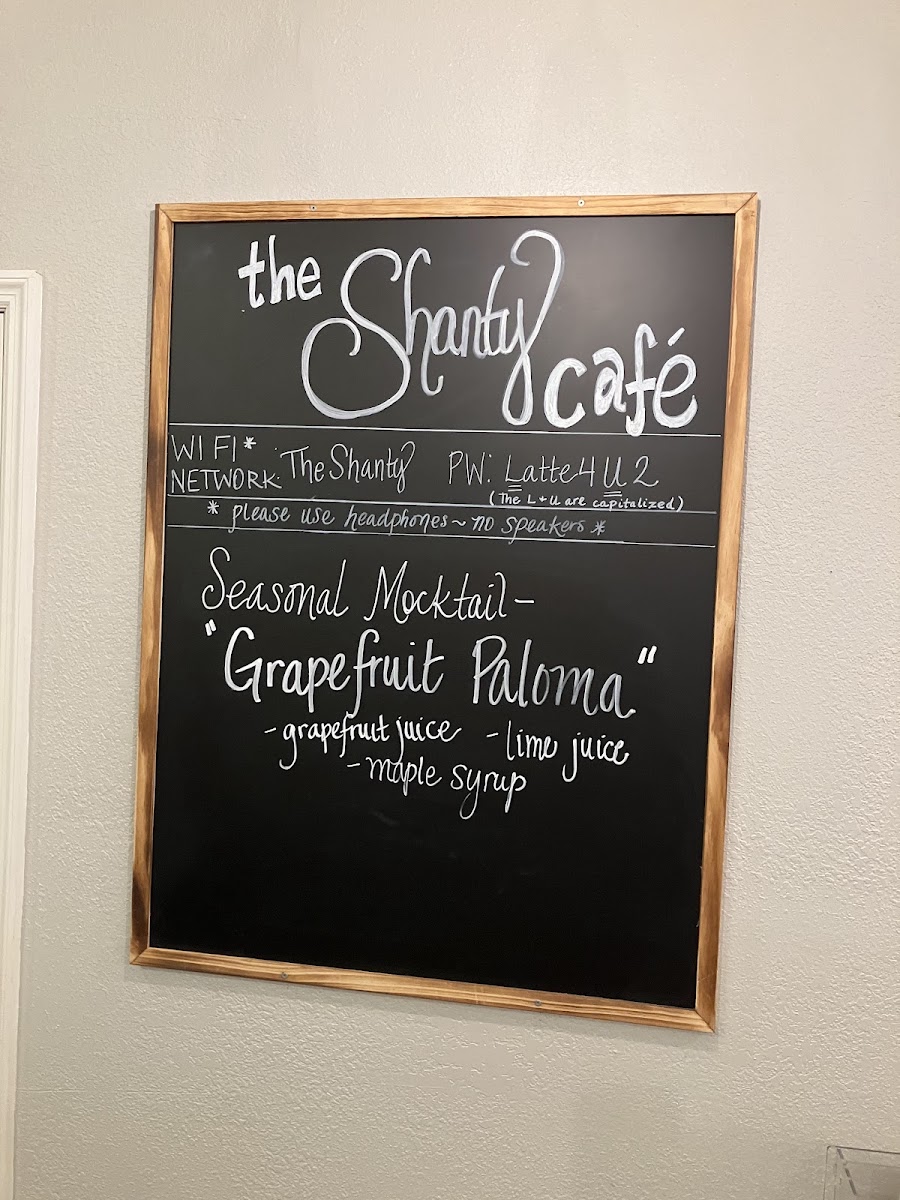 the Shanty café
WIFI*
NETWORK: The Shanty PW: Latte4U2
(The L + U are capitalized)
* please use headphones ~ no speakers *
Seasonal Mocktail -
"Grapefruit Paloma"
- grapefruit juice - lime juice
- maple syrup